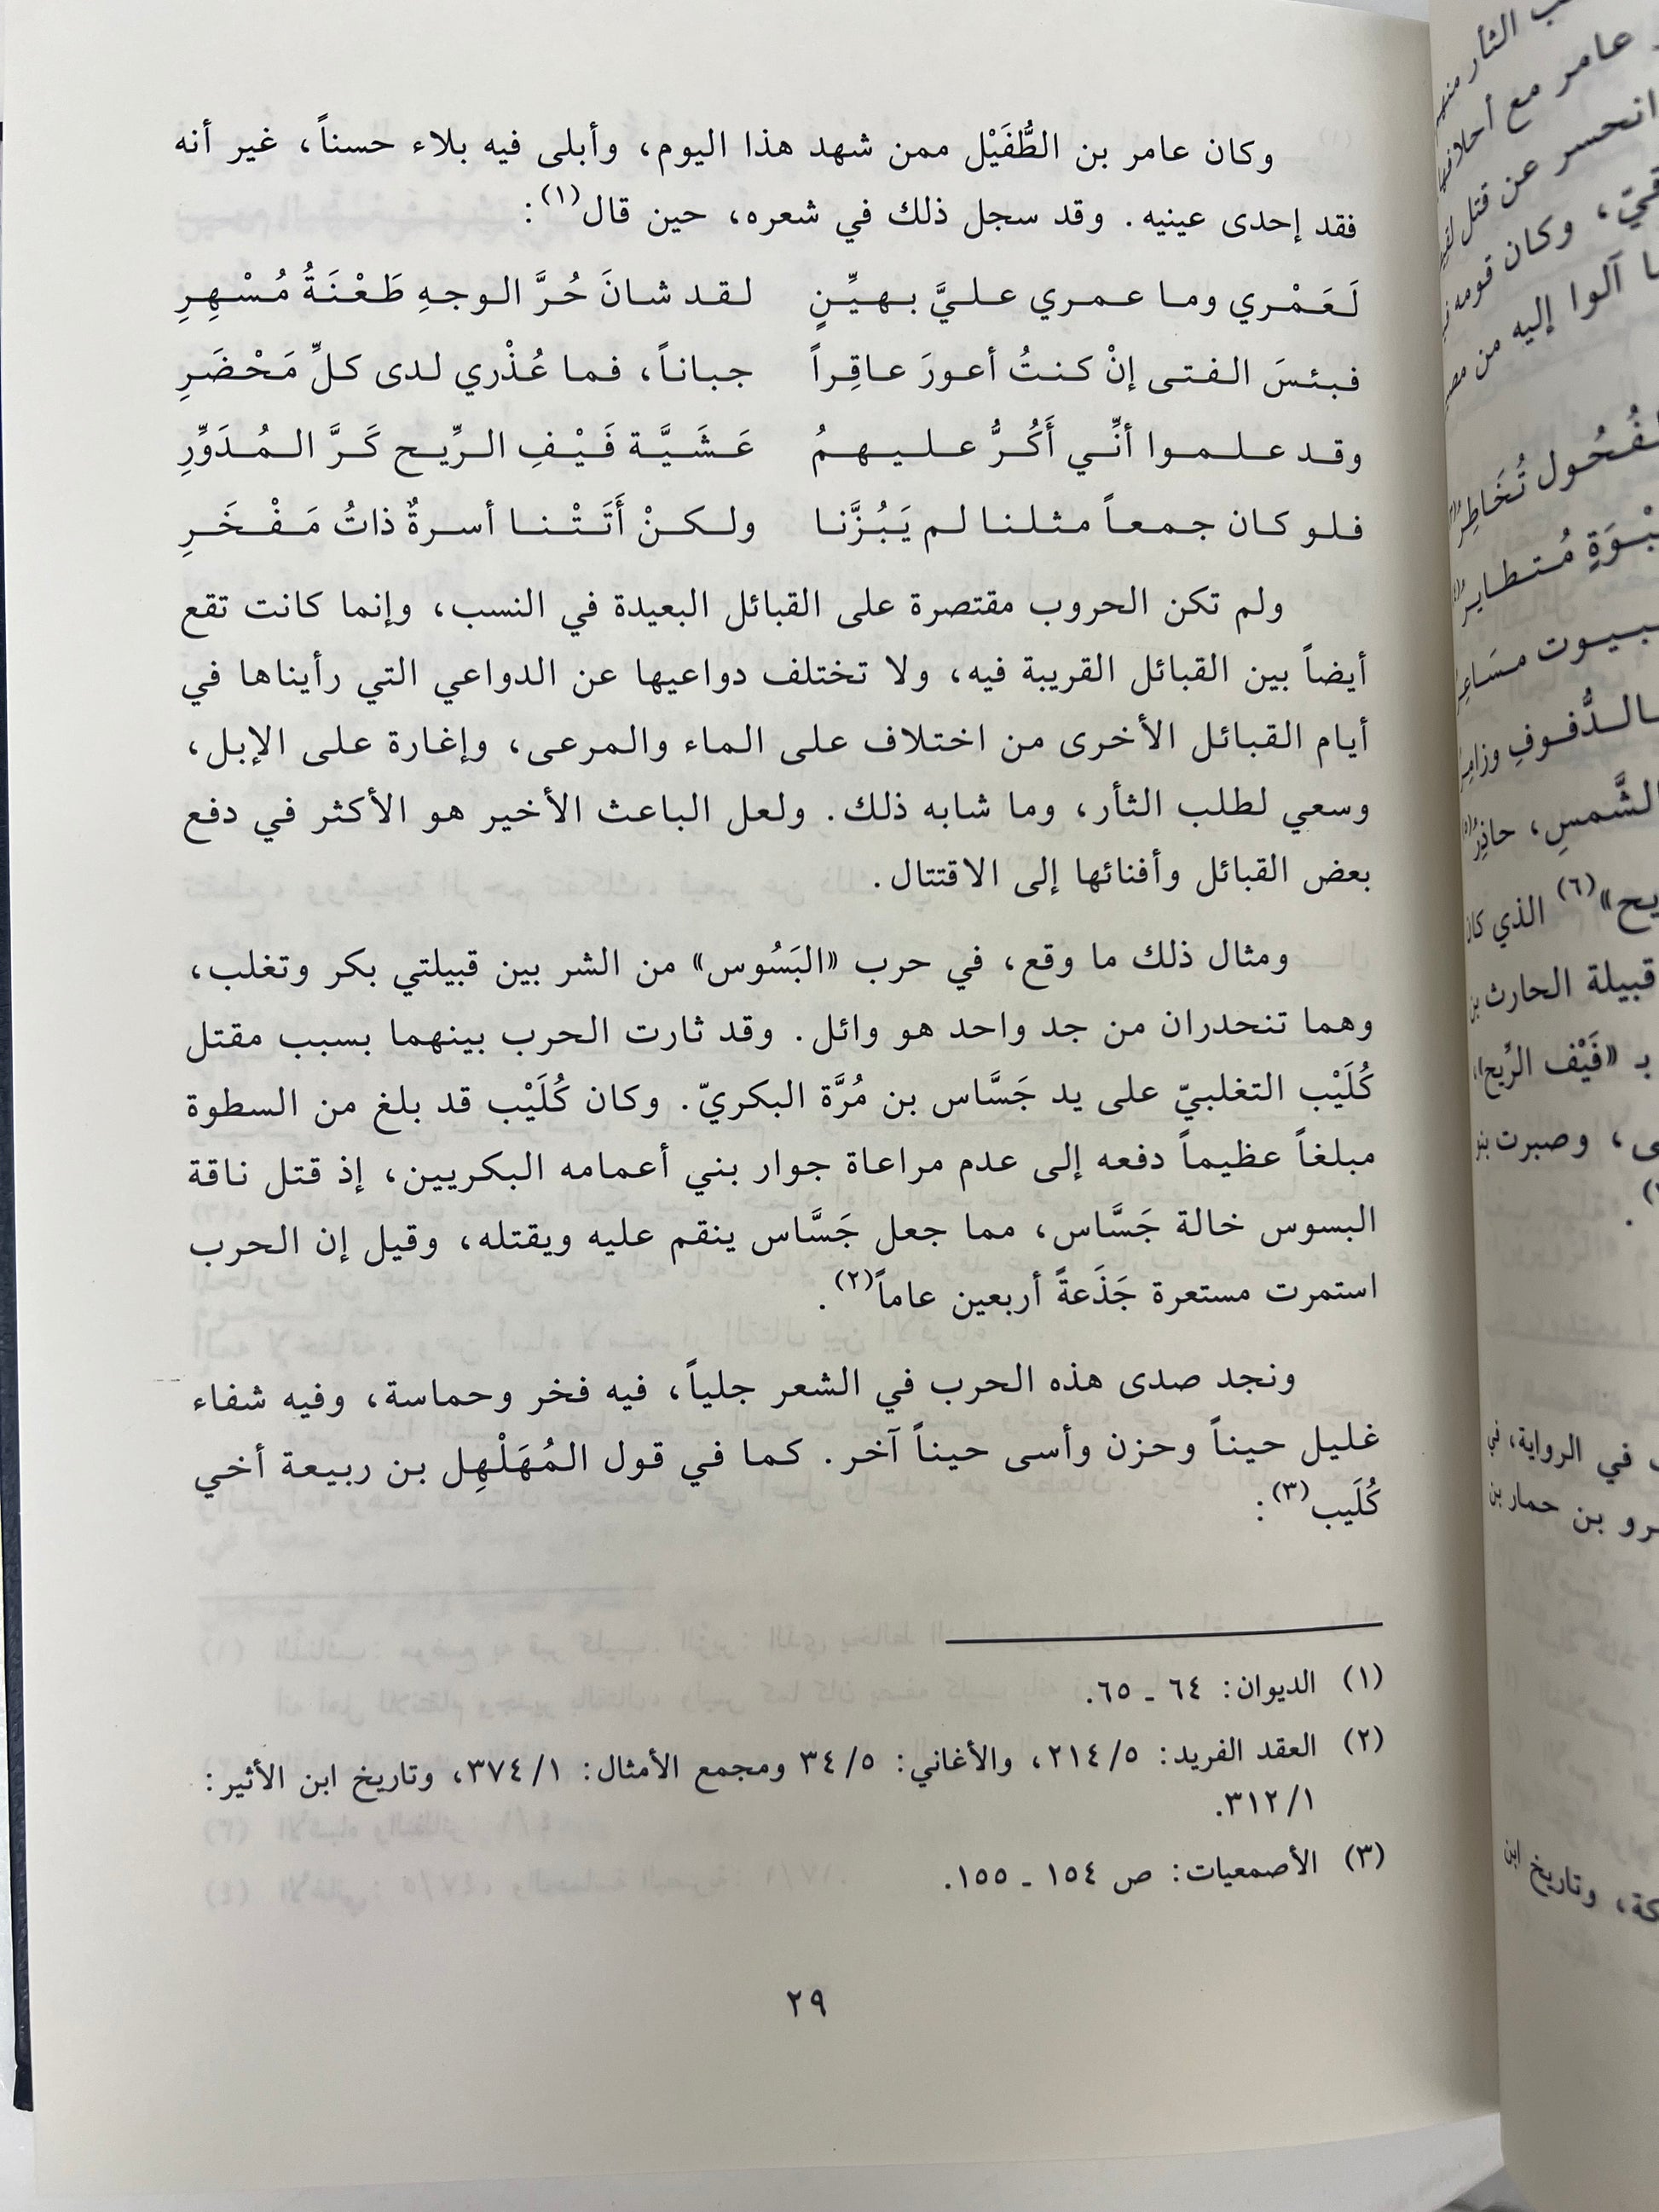 وكان عامر بن الطُّفَيْل ممن شهد هذا اليوم، وأبلى فيه بلاء حسناً، غير أنه
فقد إحدى عينيه. وقد سجل ذلك في شعره، حين قال(١):
لَعَمْري وما عمري عليَّ بهيِّنٍ لقد شانَ حُرَّ الوجهِ طَعْنَةُ مُسْهِرِ
فبئسَ الفتى إنْ كنتُ أعورَ عاقِراً جباناً، فما عُذْري لدى كلِّ مَحْضَرِ
وقد علموا أنِّي أَكُرُّ عليهمُ عَشَيَّة فَيْفِ الرِّيح كَرَّ المُدَوِّرِ
فلو كان جمعاً مثلنا لم يَبُزَّنا ولكنْ أَتَتْنا أسرةٌ ذاتُ مَفْخَرِ
ولم تكن الحروب مقتصرة على القبائل البعيدة في النسب، وإنما كانت تقع
أيضاً بين القبائل القريبة فيه، ولا تختلف دواعيها عن الدواعي التي رأيناها في
أيام القبائل الأخرى من اختلاف على الماء والمرعى، وإغارة على الإبل،
وسعي لطلب الثأر، وما شابه ذلك. ولعل الباعث الأخير هو الأكثر في دفع
بعض القبائل وأفنائها إلى الاقتتال.
ومثال ذلك ما وقع، في حرب «البَسُوس» من الشر بين قبيلتي بكر وتغلب،
وهما تنحدران من جد واحد هو وائل. وقد ثارت الحرب بينهما بسبب مقتل
كُلَيْب التغلبيّ على يد جَسَّاس بن مُرَّة البكريّ. وكان كُلَيْب قد بلغ من السطوة
مبلغاً عظيماً دفعه إلى عدم مراعاة جوار بني أعمامه البكريين، إذ قتل ناقة
البسوس خالة جَسَّاس، مما جعل جَسَّاس ينقم عليه ويقتله، وقيل إن الحرب
استمرت مستعرة جَذَعةً أربعين عاماً(٢).
ونجد صدى هذه الحرب في الشعر جلياً، فيه فخر وحماسة، وفيه شفاء
غليل حيناً وحزن وأسى حيناً آخر. كما في قول المُهَلْهِل بن ربيعة أخي
كُلَيب(٣):
(١) الديوان: ٦٤ ـ ٦٥.
(٢) العقد الفريد: ٢١٤/٥، والأغاني: ٣٤/٥ ومجمع الأمثال: ٣٧٤/١، وتاريخ ابن الأثير:
٣١٢/١.
(٣) الأصمعيات: ص ١٥٤ ـ ١٥٥.
٢٩